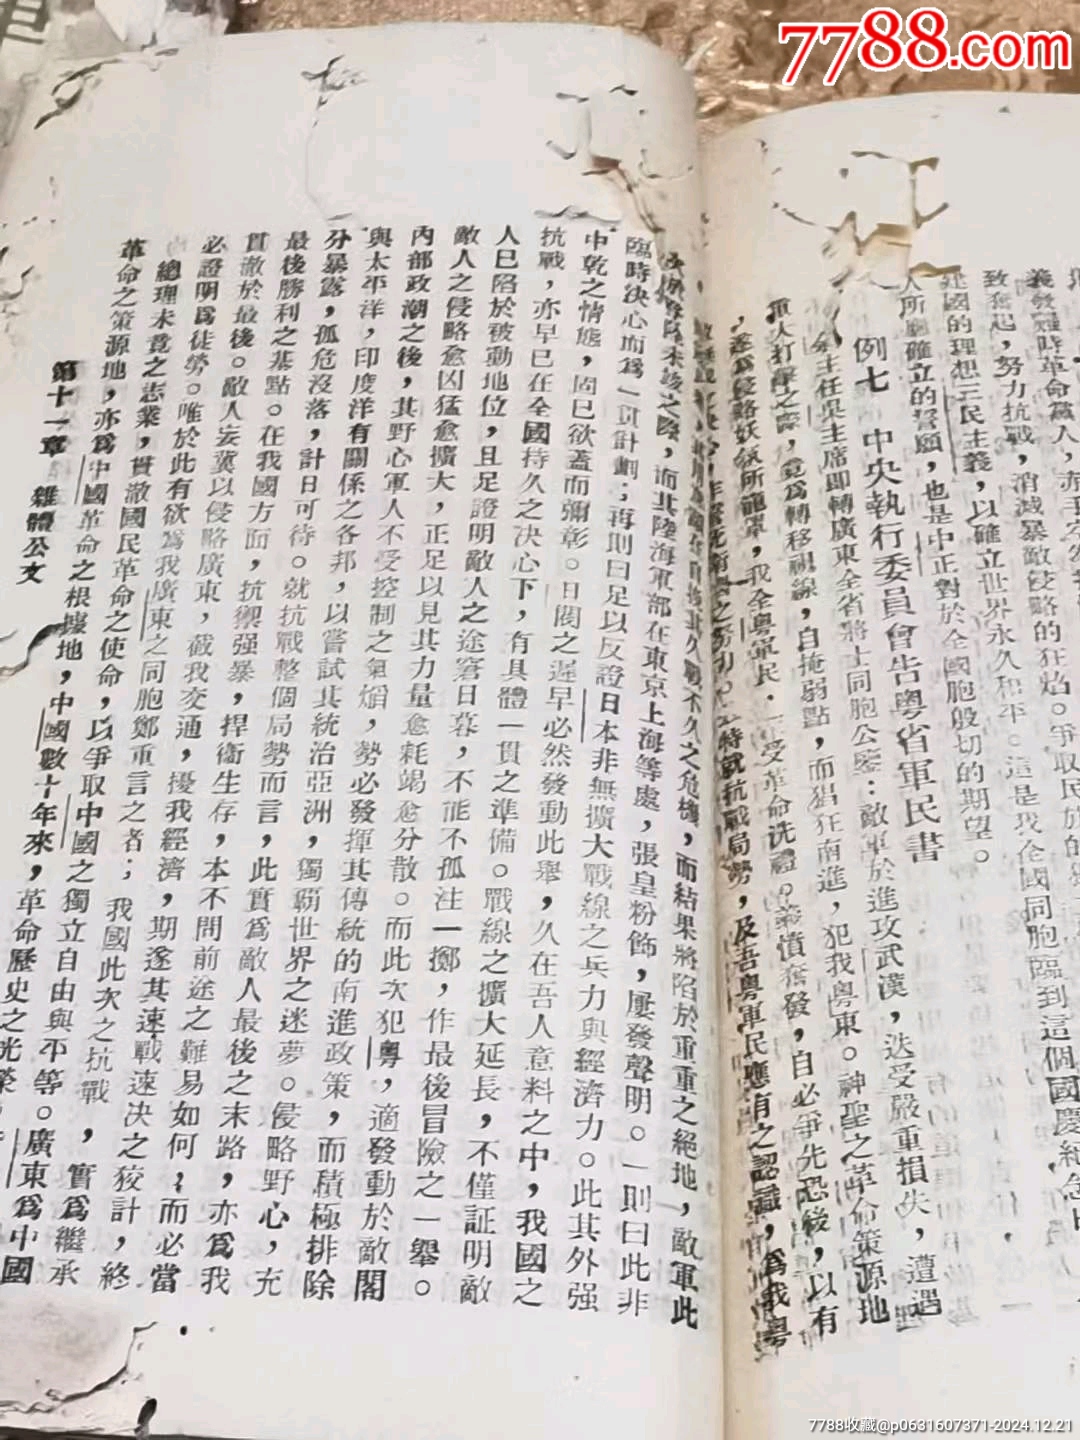 7788.com
義發難時革命黨人，赤手空拳
致奮起，努力抗戰，消滅暴敵侵略的狂焰。爭取民族的
建國的理想三民主義，以確立世界永久和平。這是我全國同胞臨到這個國慶紀念日
人所應確立的誓願，也是中正對於全國胞般切的期望。
例七　中央執行委員會告粵省軍民書
余主任吳主席即轉廣東全省將士同胞公鑒：敵軍於進攻武漢，迭受嚴重損失，遭遇
重大打擊之際，竟爲轉移視線，自掩弱點，而猖狂南進，犯我粵東。神聖之革命策源地
，遂爲侵略妖氛所籠罩，我全粵軍民，一受革命洗禮。義憤奮發，自必爭先恐後，以有
特就抗戰局勢，及吾粵軍民應有之認識，爲我粵
久戰不久之危機，而結果將陷於重重之絕地，敵軍此
之際，而其陸海軍部在東京上海等處，張皇粉飾，屢發聲明。一則曰此非
臨時決心而爲一貫計劃；再則曰足以反證日本非無擴大戰線之兵力與經濟力。此其外强
中乾之情態，固已欲蓋而彌彰。日閥之遲早必然發動此舉，久在吾人意料之中，我國之
抗戰，亦早已在全國持久之決心下，有具體一貫之準備。戰線之擴大延長，不僅証明敵
人已陷於被動地位，且足證明敵人之途窮日暮，不能不孤注一擲，作最後冒險之一舉。
敵人之侵略愈凶猛愈擴大，正足以見其力量愈耗竭愈分散。而此次犯粵，適發動於敵閣
內部政潮之後，其野心軍人不受控制之氣燄，勢必發揮其傳統的南進政策，而積極排除
與太平洋，印度洋有關係之各邦，以嘗試其統治亞洲，獨霸世界之迷夢。侵略野心，充
分暴露，孤危沒落，計日可待。就抗戰整個局勢而言，此實爲敵人最後之末路，亦爲我
最後勝利之基點。在我國方面，抗禦强暴，捍衞生存，本不問前途之難易如何，而必當
貫澈於最後。敵人妄冀以侵略廣東，截我交通，擾我經濟，期遂其速戰速決之狡計，終
必證明爲徒勞。唯於此有欲爲我廣東之同胞鄭重言之者；我國此次之抗戰，實爲繼承
總理未竟之志業，貫澈國民革命之使命，以爭取中國之獨立自由與平等。廣東爲中國
革命之策源地，亦爲中國革命之根據地，中國數十年來，革命歷史之光榮
第十一章　雜體公文
7788收藏@p0631607371-2024.12.21